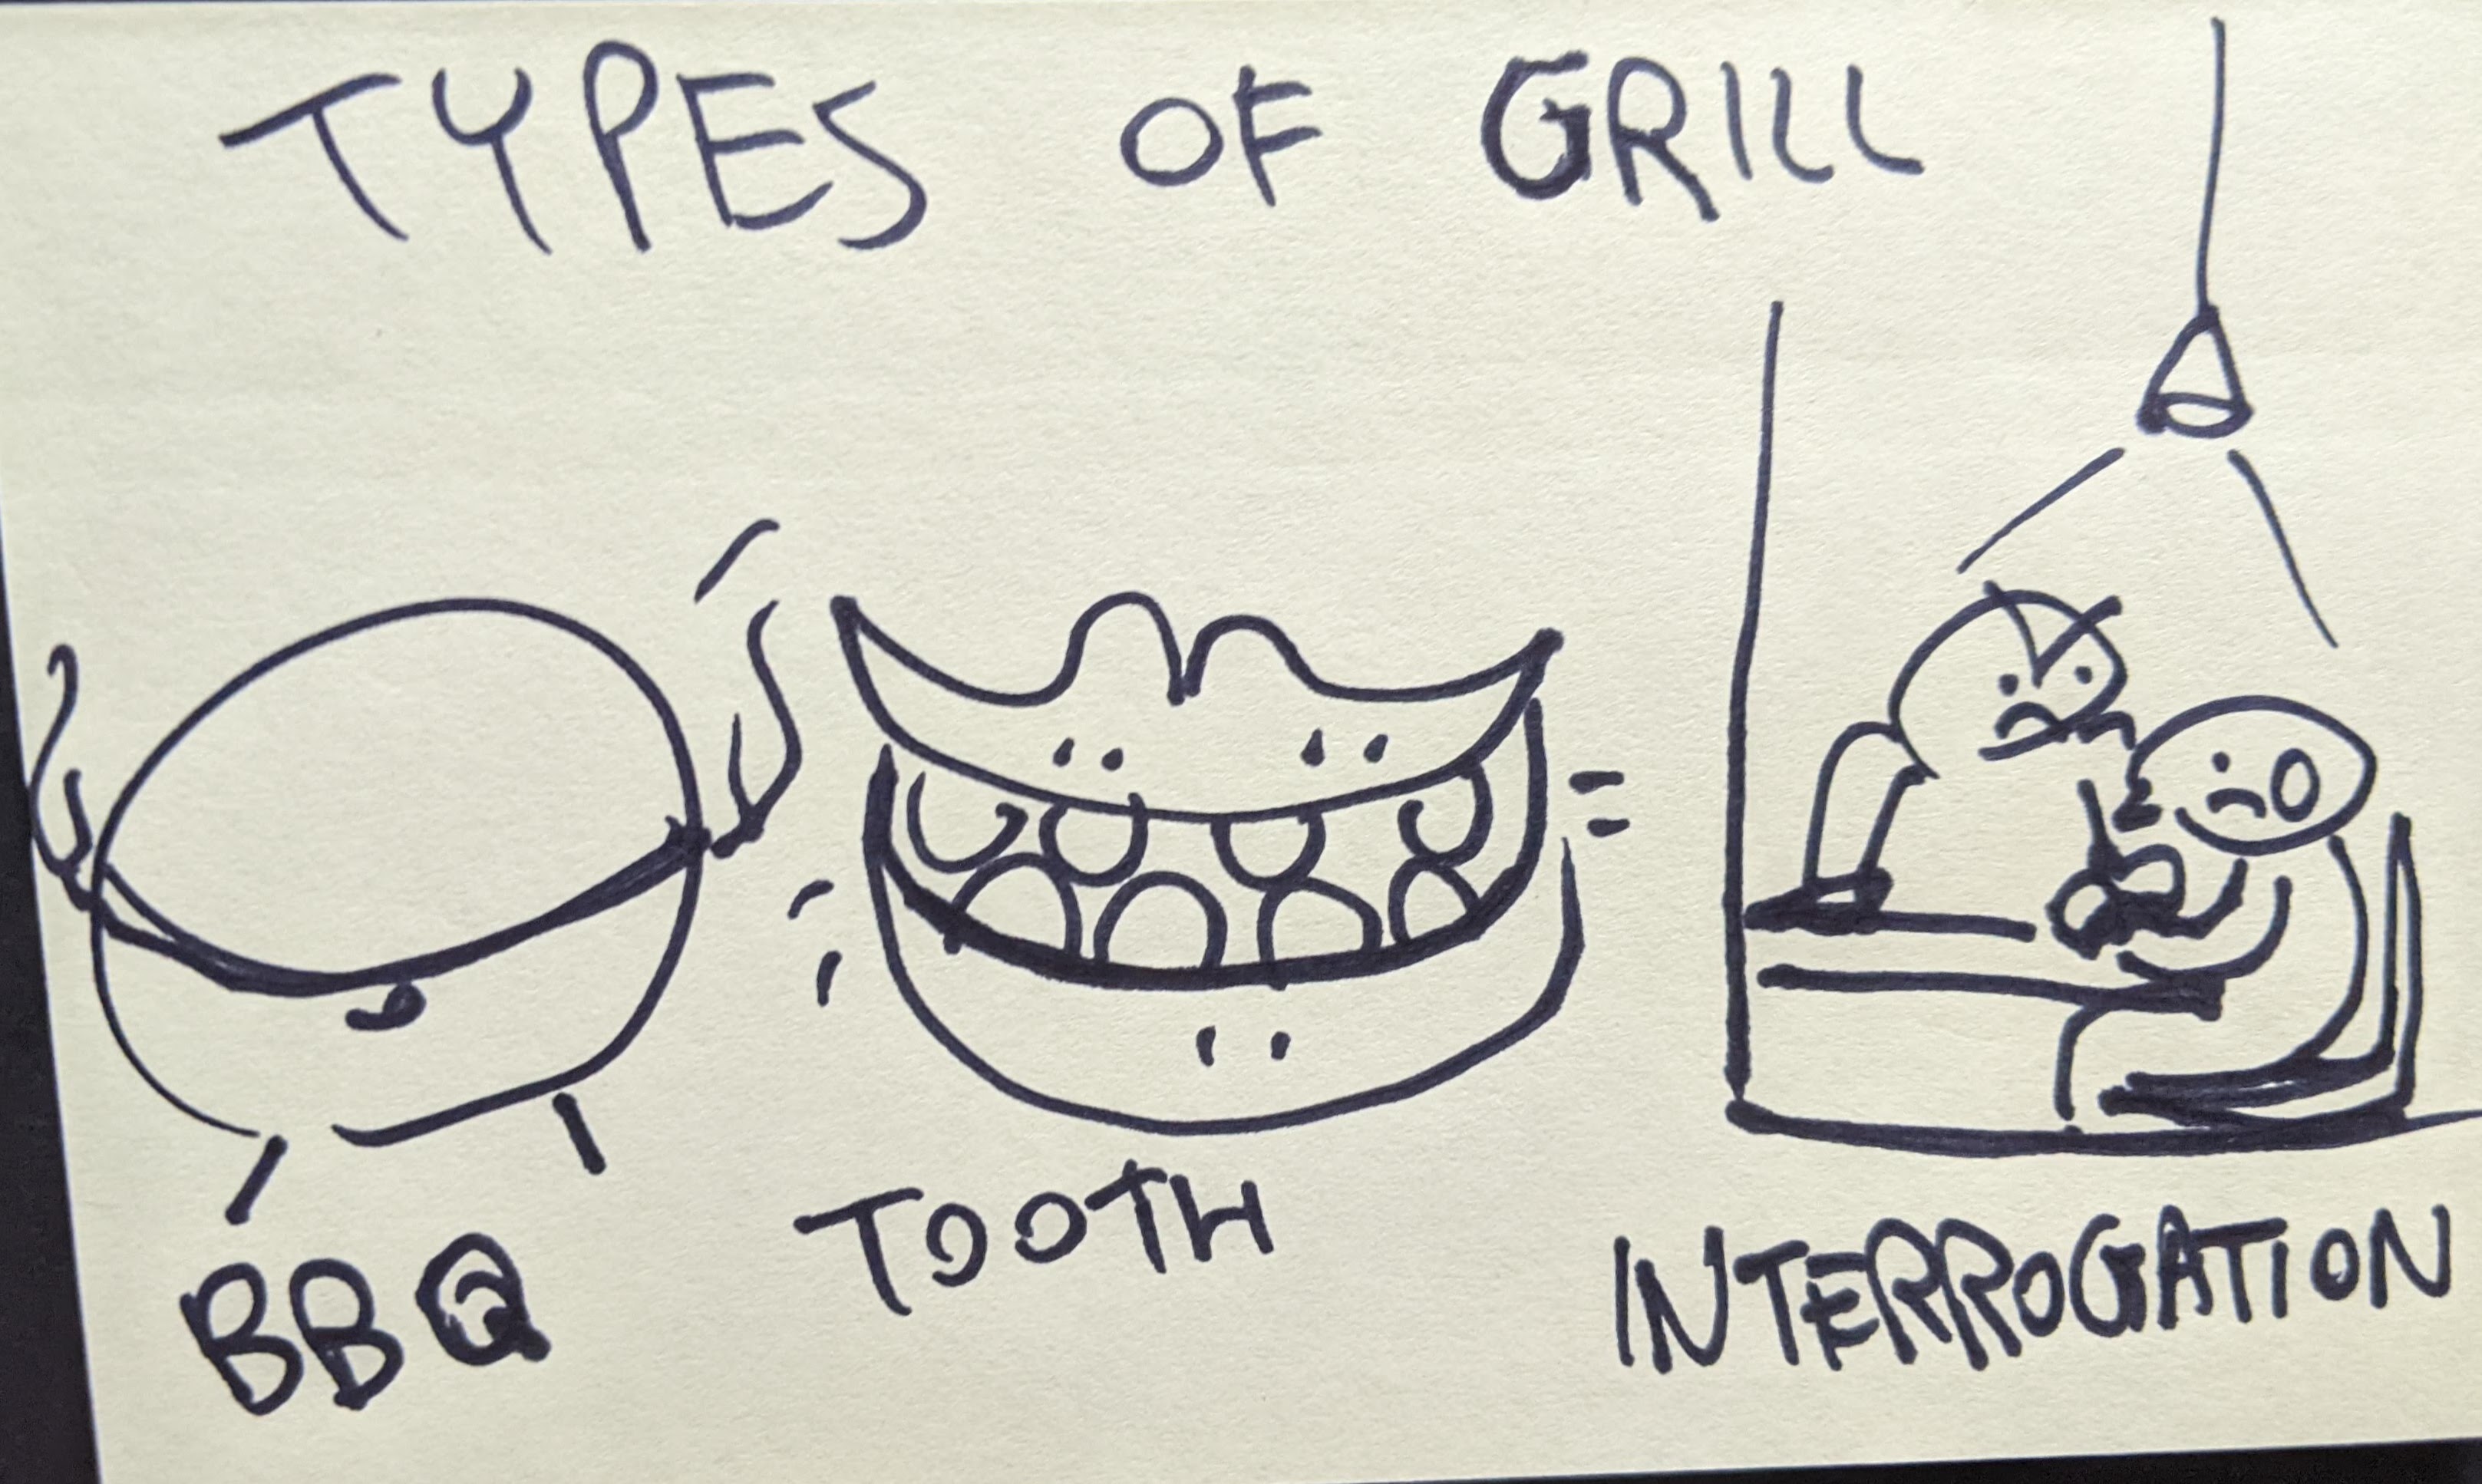 TYPES OF GRILL
BBQ
TOOTH
INTERROGATION